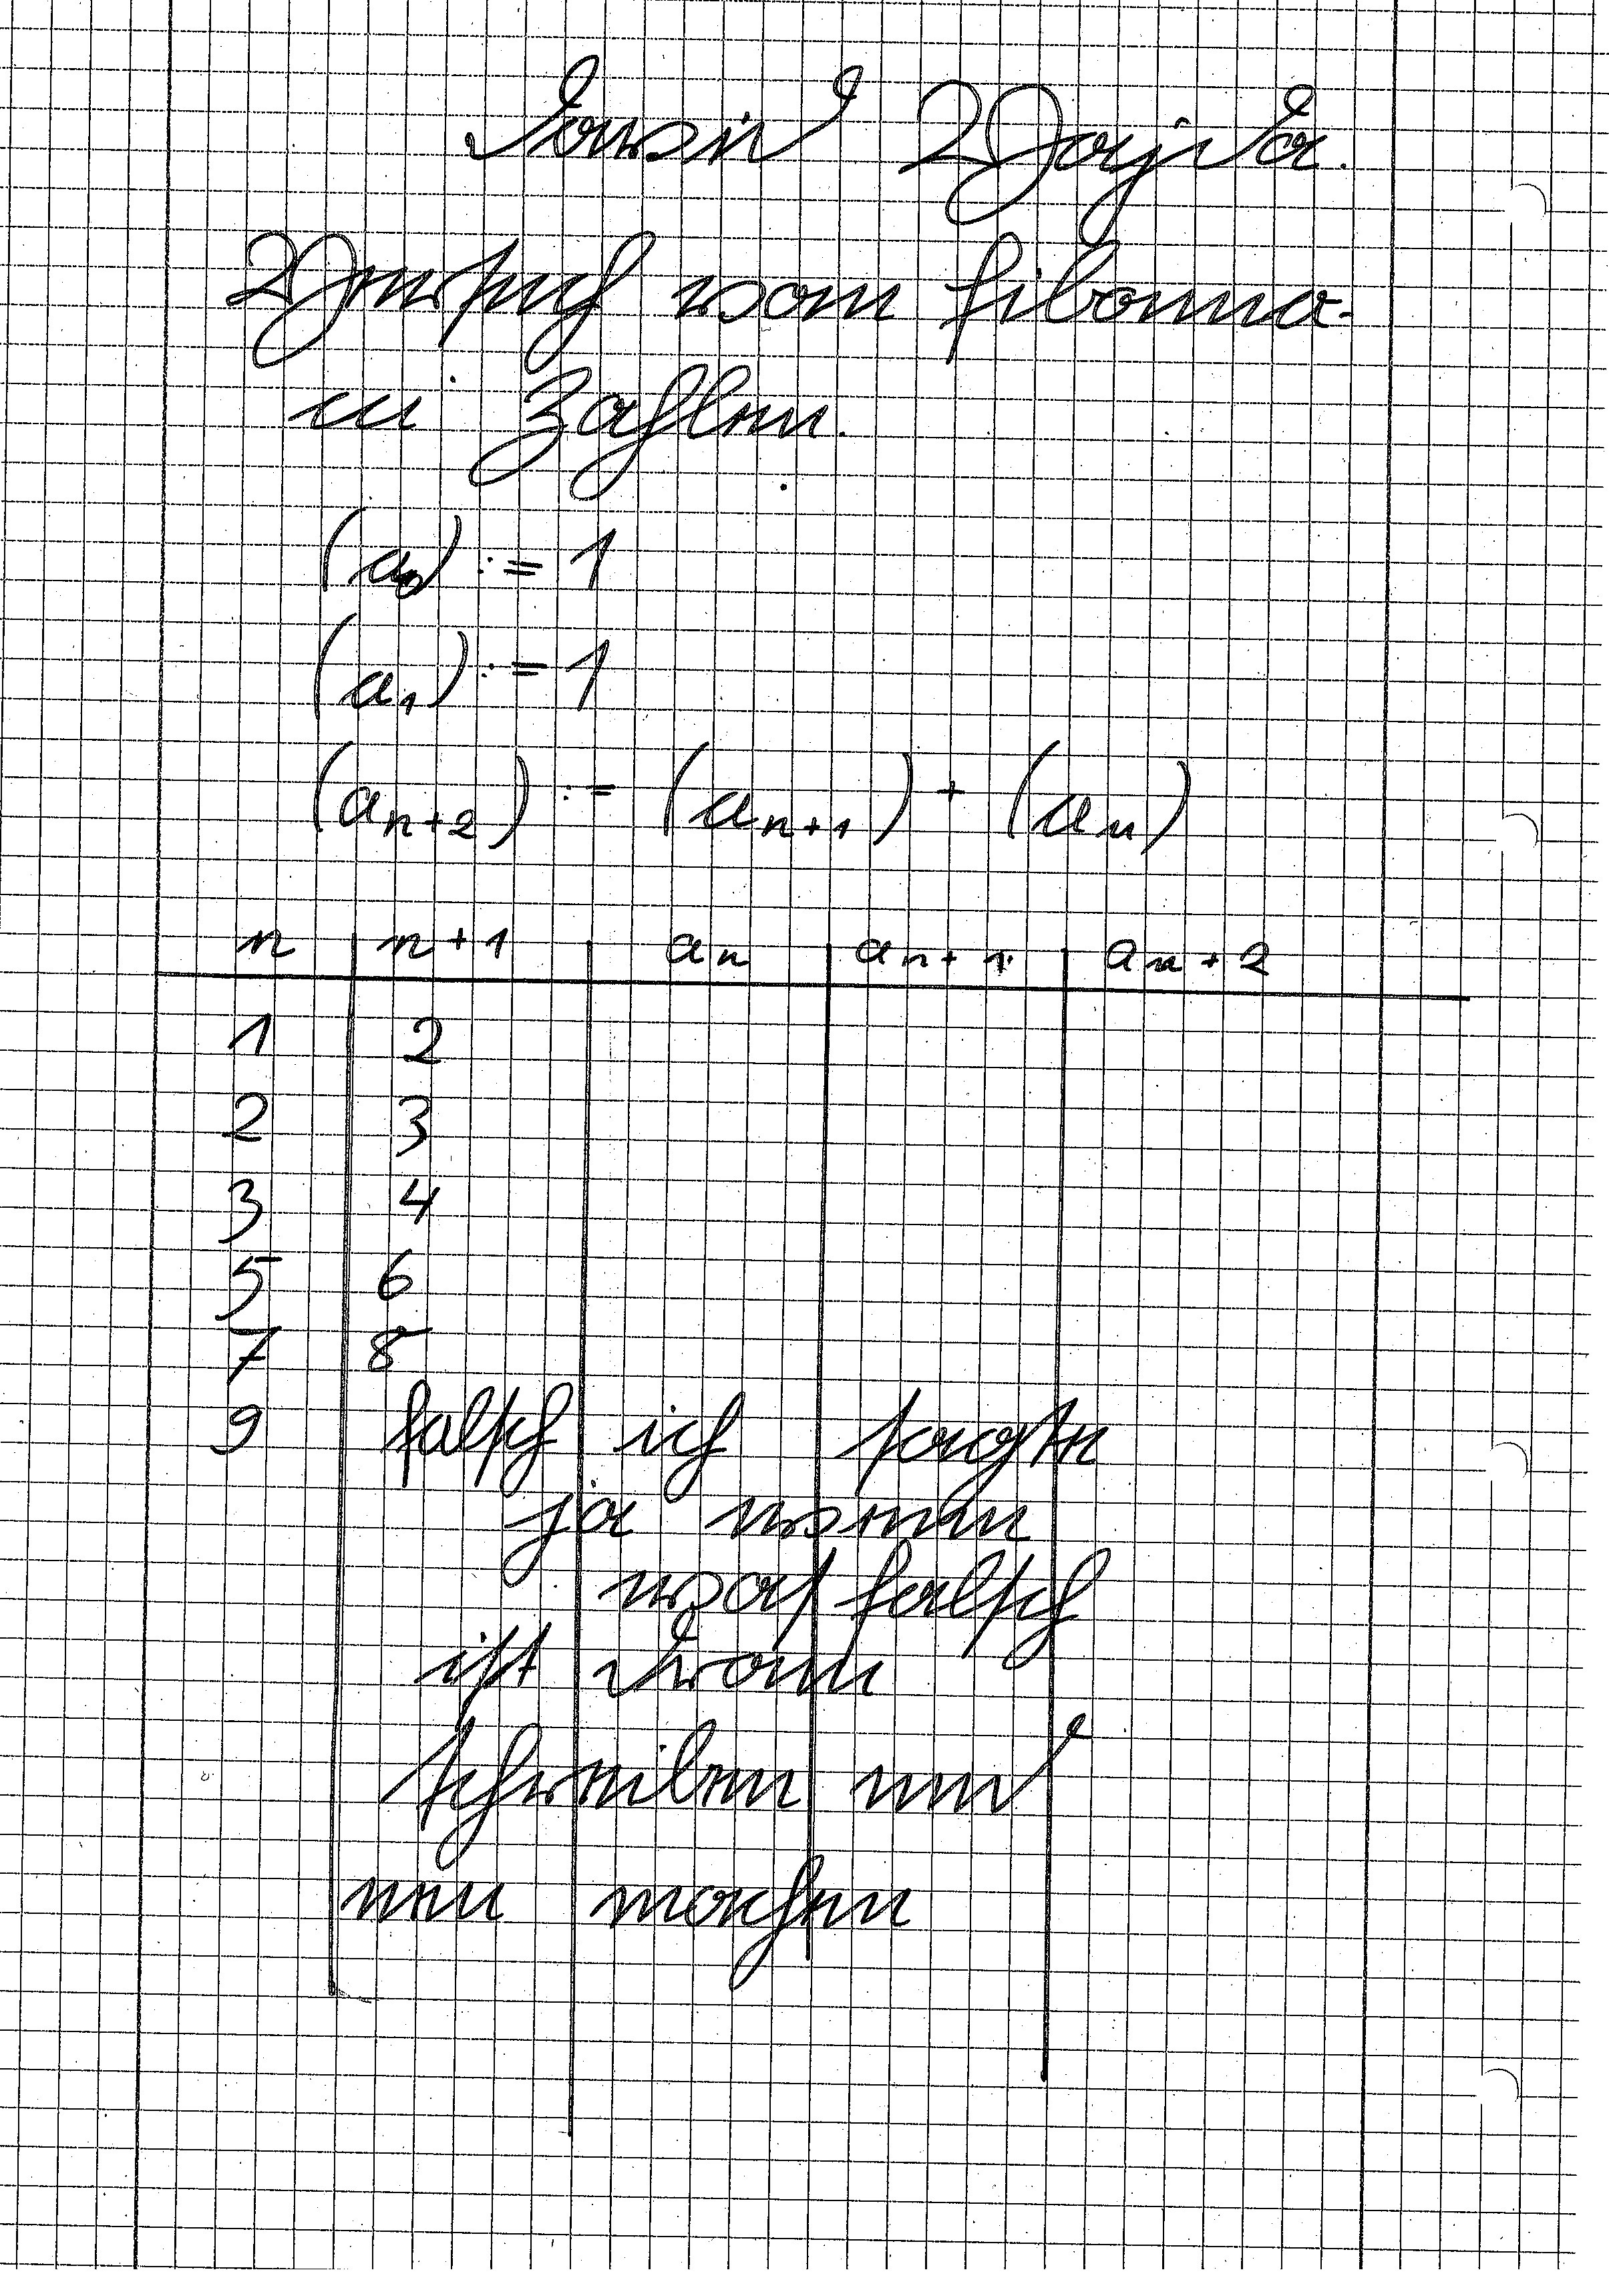 David Vajda.
Versuch von fibonna-
cci Zahlen.
(a₀) := 1
(a₁) := 1
(aₙ₊₂) := (aₙ₊₁) + (aₙ)
n n+1 aₙ aₙ₊₁ aₙ₊₂
1 2
2 3
3 4
5 6
7 8
9 falsch ich sagte
ja wenn
was falsch
ist dran
schreiben und
neu machen